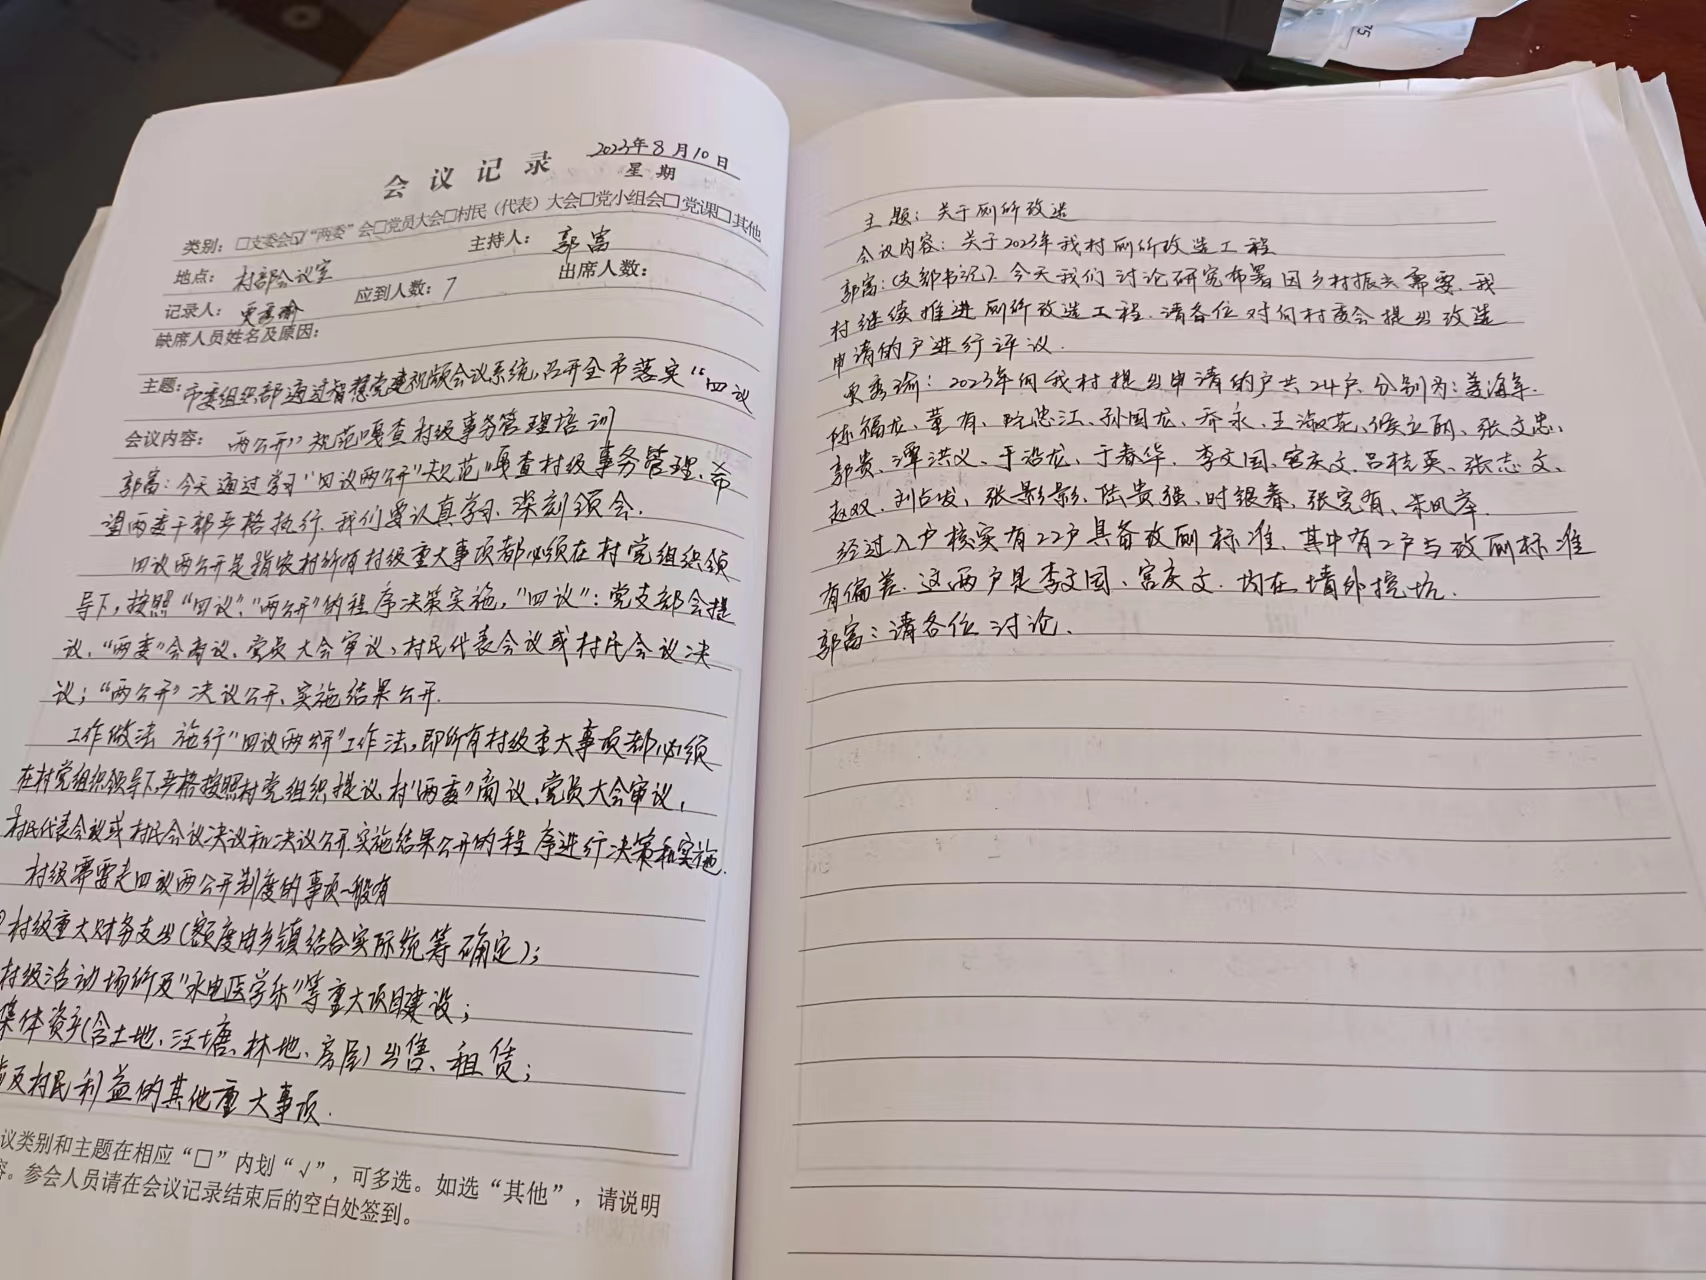 2023年8月10日
会议记录 星期
类别：□支委会☑“两委”会□党员大会□村民（代表）大会□党小组会□党课□其他
地点：村部会议室 主持人：郭富
记录人： 应到人数：7 出席人数：
缺席人员姓名及原因：
主题：市委组织部通过智慧党建视频会议系统，召开全市落实“四议
会议内容：两公开”规范嘎查村级事务管理培训
郭富：今天通过学习“四议两公开”规范嘎查村级事务管理、希
望两委干部严格执行．我们要认真学习、深刻领会．
四议两公开是指农村所有村级重大事项都必须在村党组织领
导下，按照“四议”、“两公开”的程序决策实施，“四议”：党支部会提
议、“两委”会商议、党员大会审议、村民代表会议或村民会议决
议；“两公开”决议公开、实施结果公开．
工作做法 施行“四议两公开”工作法，即所有村级重大事项都必须
在村党组织领导下，严格按照村党组织提议、村“两委”商议、党员大会审议、
村民代表会议或村民会议决议和决议公开、实施结果公开的程序进行决策和实施．
村级需要走四议两公开制度的事项一般有
村级重大财务支出（额度由乡镇结合实际统筹确定）；
村级活动场所及“水电医学乐”等重大项目建设；
集体资产（含土地、汪塘、林地、房屋）出售、租赁；
及村民利益的其他重大事项．
议类别和主题在相应“□”内划“√”，可多选。如选“其他”，请说明
容。参会人员请在会议记录结束后的空白处签到。
主题：关于厕所改造
会议内容：关于2023年我村厕所改造工程
郭富：（支部书记）．今天我们讨论研究布署因乡村振兴需要．我
村继续推进厕所改造工程．请各位对向村委会提出改造
申请的户进行评议．
秀瑜：2023年向我村提出申请的户共24户．分别为：姜海军．
陈福龙、董有、阮忠江、孙国龙、乔永、王淑花、侯立丽、张文忠、
郭贵、潭洪义、于治龙、于春华．李文国、宫庆文．吕桂英、张志文、
赵双、刘占发、张影影、陆贵强、时银春、张宪有、宋凤
经过入户核实有22户具备改厕标准．其中有2户与改厕标准
有偏差．这两户是李文国、宫庆文．均在墙外挖坑．
郭富：请各位讨论．